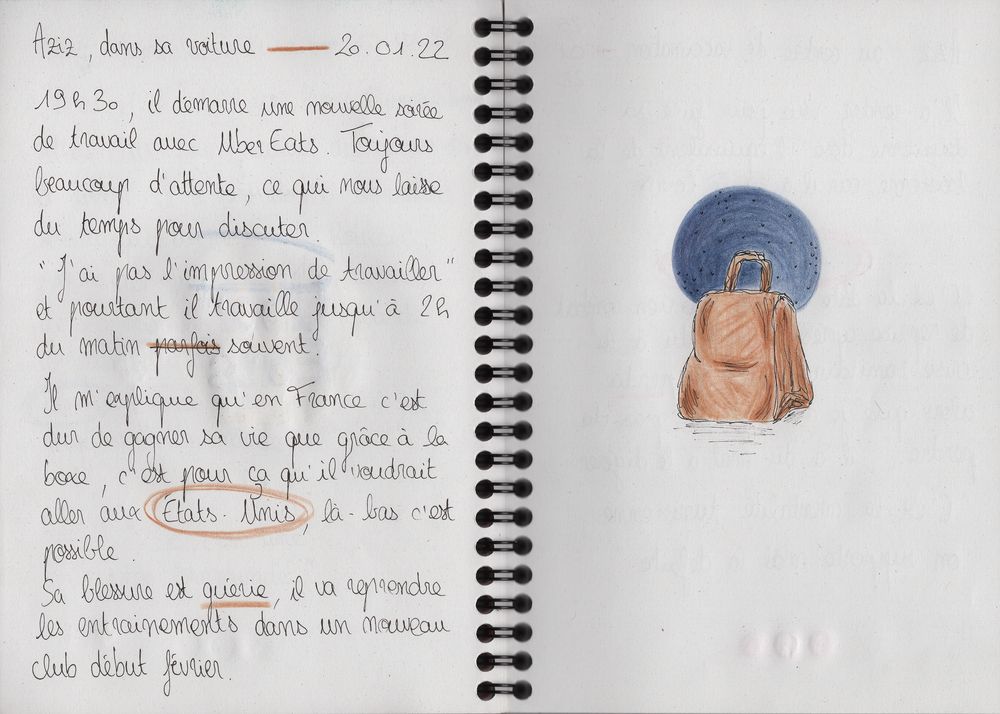 Aziz, dans sa voiture — 20.01.22
19h30, il démarre une nouvelle soirée
de travail avec UberEats. Toujours
beaucoup d'attente, ce qui nous laisse
du temps pour discuter.
"J'ai pas l'impression de travailler"
et pourtant il travaille jusqu'à 2h
du matin parfois souvent.
Il m'explique qu'en France c'est
dur de gagner sa vie que grâce à la
boxe, c'est pour ça qu'il voudrait
aller aux Etats-Unis, là-bas c'est
possible.
Sa blessure est guérie, il va reprendre
les entrainements dans un nouveau
club début février.